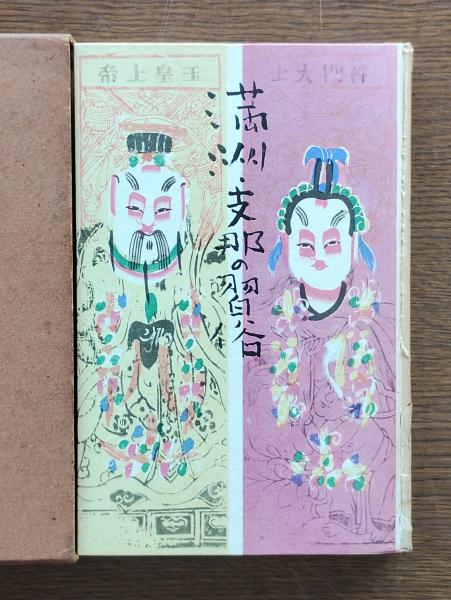 玉皇上帝
普門大士
満洲・支那の習俗